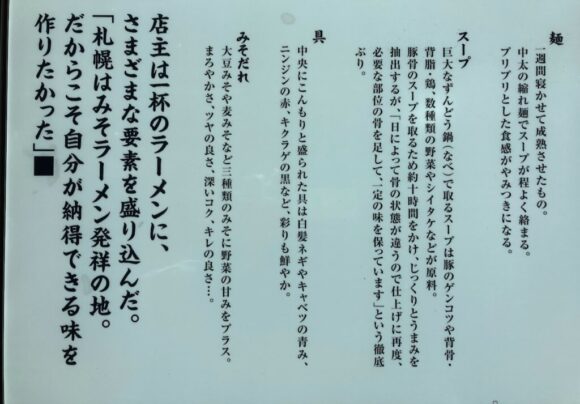 麺
一週間寝かせて成熟させたもの。
中太の縮れ麺でスープが程よく絡まる。
プリプリとした食感がやみつきになる。
スープ
巨大なずんどう鍋(なべ)で取るスープは豚のゲンコツや背骨・
背脂・鶏、数種類の野菜やシイタケなどが原料。
豚骨のスープを取るため約十時間をかけ、じっくりとうまみを
抽出するが、「日によって骨の状態が違うので仕上げに再度、
必要な部位の骨を足して、一定の味を保っています」という徹底
ぶり。
具
中央にこんもりと盛られた具は白髪ネギやキャベツの青み、
ニンジンの赤、キクラゲの黒など、彩りも鮮やか。
みそだれ
大豆みそや麦みそなど三種類のみそに野菜の甘みをプラス。
まろやかさ、ツヤの良さ、深いコク、キレの良さ…。
店主は一杯のラーメンに、
さまざまな要素を盛り込んだ。
「札幌はみそラーメン発祥の地。
だからこそ自分が納得できる味を
作りたかった」■